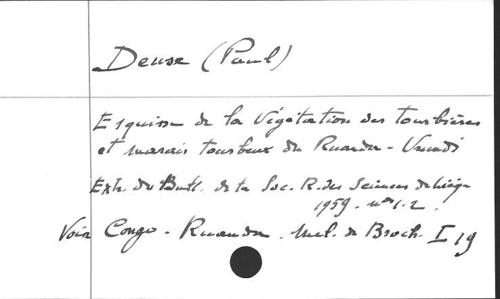 Deuse (Paul)
Esquisse de la Végétation des tourbières
et marais tourbeux du Ruanda-Urundi
Extr. du Bull. de la Soc. R. des Sciences de Liège
1959. nos 1-2.
Voir Congo - Ruanda. Mél. de Broch. I 19